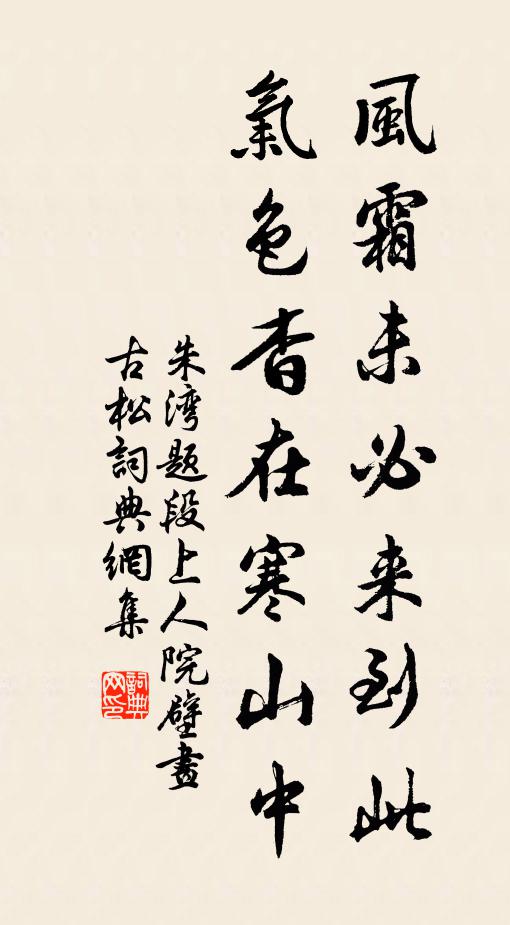 風霜未必来到此
氣色杳在寒山中
朱湾题段上人院壁畫
古松詞典網集
詞典網印